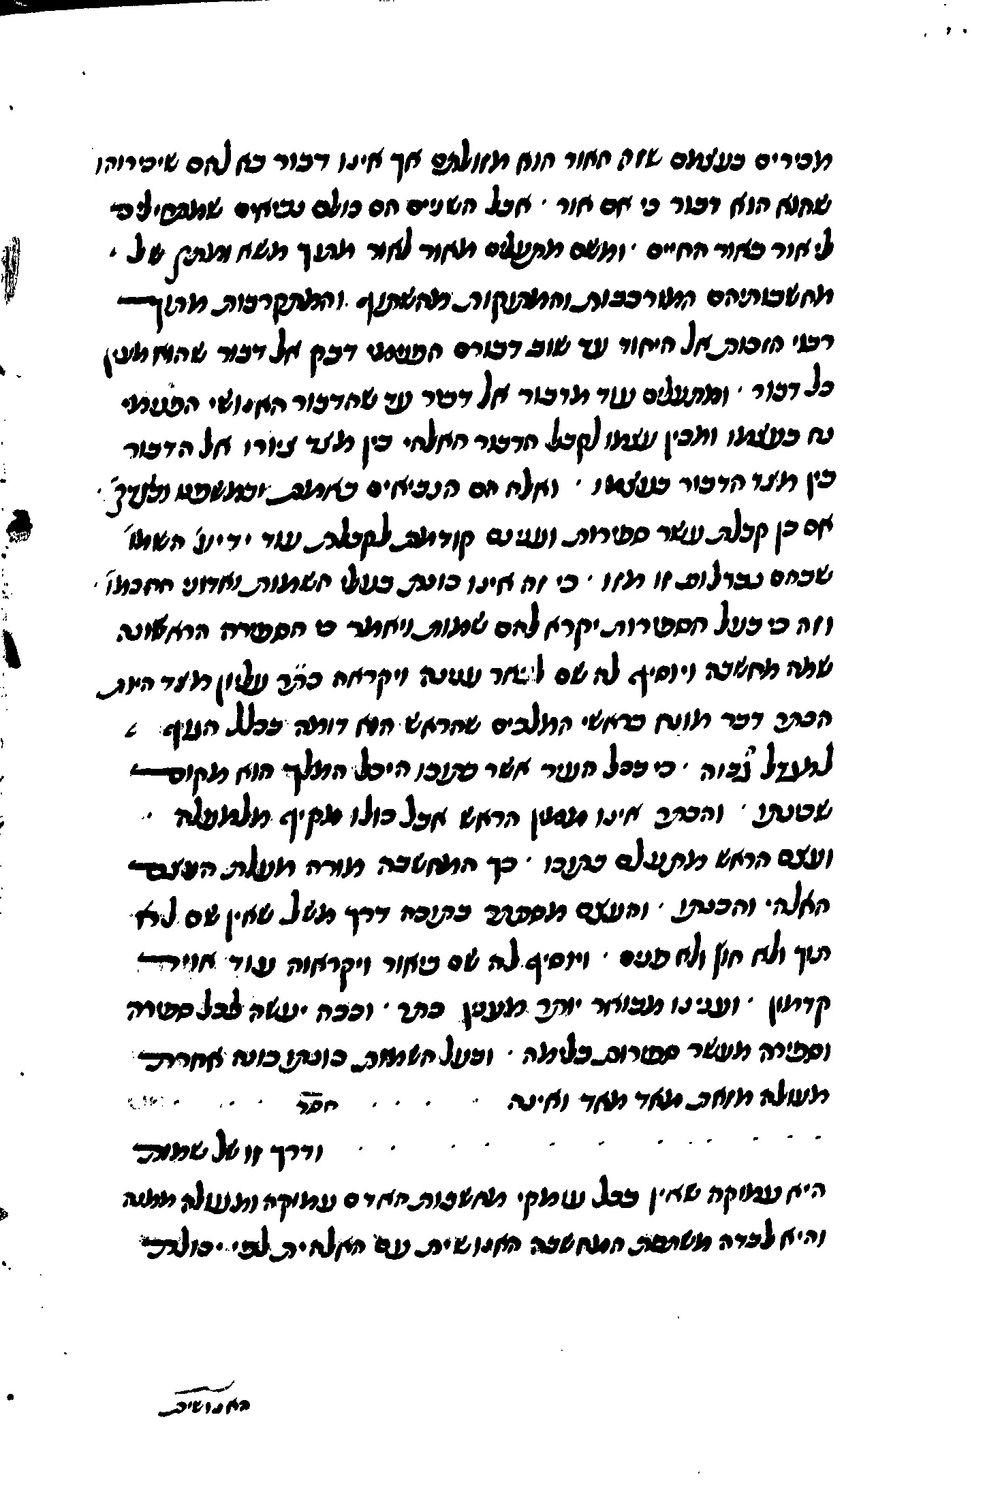 מכירים בעצמם שזה האור הוא מזולתם אך אינו דבור בא להם שיכירוהו
שהוא הוא דבור כי אם אור · אבל השנים הם כולם נביאים שמתחילים
ליאור באור החיים · ומשם מתעלים מאור לאור מתוך משא ומתן של ·
מחשבותיהם המורכבות והממתקות מהשתוף והמתקרבות מתוך
רבוי הזכות אל היחוד עד שוב דבורם הפנימי דבק אל דבור שהוא מעין
כל דבור · ומתעלים עוד מדבור אל דבור עד שהדבור האנושי הפנימי
נח בעצמו ומכין עצמו לקבל הדבור האלהי בין מצד ציורו אל הדבור
בין מצד הדבור בעצמו · ואלה הם הנביאים באמת ובמשפט ובצדק ·
אם כן קבלת עשר ספירות וענינם קודמת לקבלת עוד ידיע׳ השמו׳
שבהם נבדלות זו מזו · כי זה אינו כונת בעלי השמות וארון החכמו׳ ·
וזה כי בעל הספירות יקרא להם שמות ויאמר כי הספירה הראשונה
שמה מחשבה ויוסיף לה שם לבאר ענינה ויקראה כתר עליון מצד היות
הכתר דבר מונח בראשי המלכים שהראש הוא דומה בכלל הגוף
למגדל גבוה · כי בכל העיר אשר בתוכו היכל המלך הוא מקום
שכינתו · והכתר אינו מענין הראש אבל כולו מקיף מלמעלה ·
ועצם הראש מתעלם בתוכו · כך המחשבה מורה מעלת העצם
האלהי והכנתו · והעצם מסתתר בתוכה דרך משל שאין שם לא
תוך ולא חוץ ולא פנים · ויוסיף לה שם ביאור ויקראוה עוד אויר
קדמון · וענינו מבואר יותר מענין כתר · וככה יעשה לכל ספירה
וספירה מעשר ספירות בלימה · ובעל השמות כונתו כונה אחרת
מעולה מזאת מאד מאד ואינה · · · · חסר · · · ·
· · · · · · · · · · ודרך זו של שמות
היא עמוקה שאין בכל עומקי מחשבות האדם עמוקה ומעולה ממנה
והיא לבדה משתפת המחשבה האנושית עם האלהית לפי יכולת
האנושית